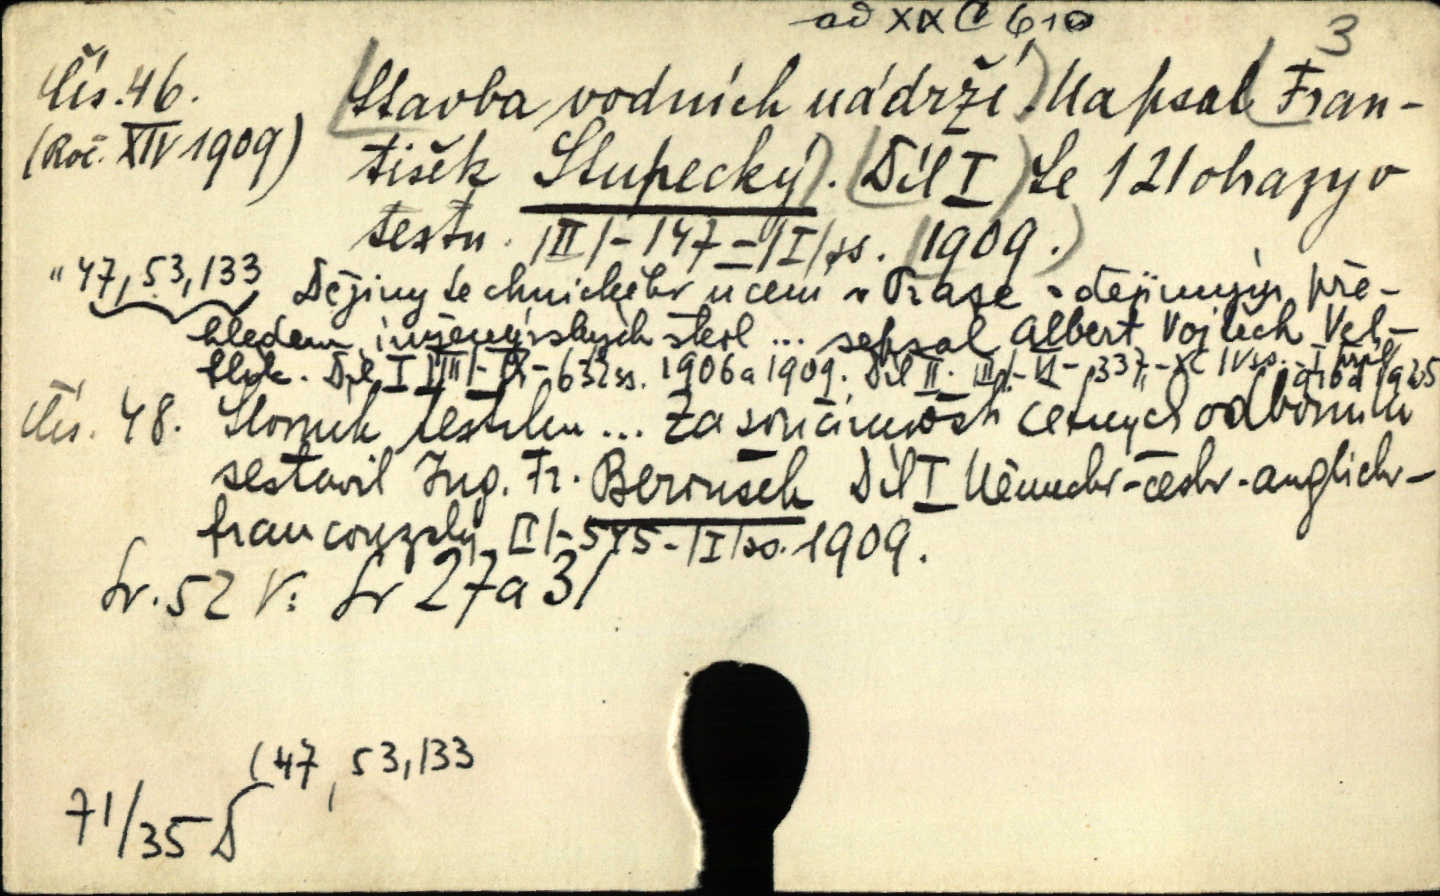 ad XIX C 610
3
Čís. 46.
(Roč. XIV 1909)
Stavba vodních nádrží. Napsal Fran-
tišek Stupecký. Díl I Se 121 obrazy v
textu. |II|-147-|I| ss. 1909.
" 47, 53, 133 Dějiny technického učení v Praze s dějinným pře-
hledem inženýrských škol ... sepsal Albert Vojtěch Vel-
flík. Díl I |III|-IX-632 ss. 1906 a 1909. Díl II. |II|-VI-337,-XC IV ss. 1925
Čís. 48. Slovník textilu ... Za součinnosti četných odborníků
sestavil Ing. Fr. Beroušek Díl I Německo-česko-anglicko-
francouzský |II|-575-|I| ss. 1909.
Sv. 52 v: Sv 27 a 31
(47, 53, 133
71/35 D